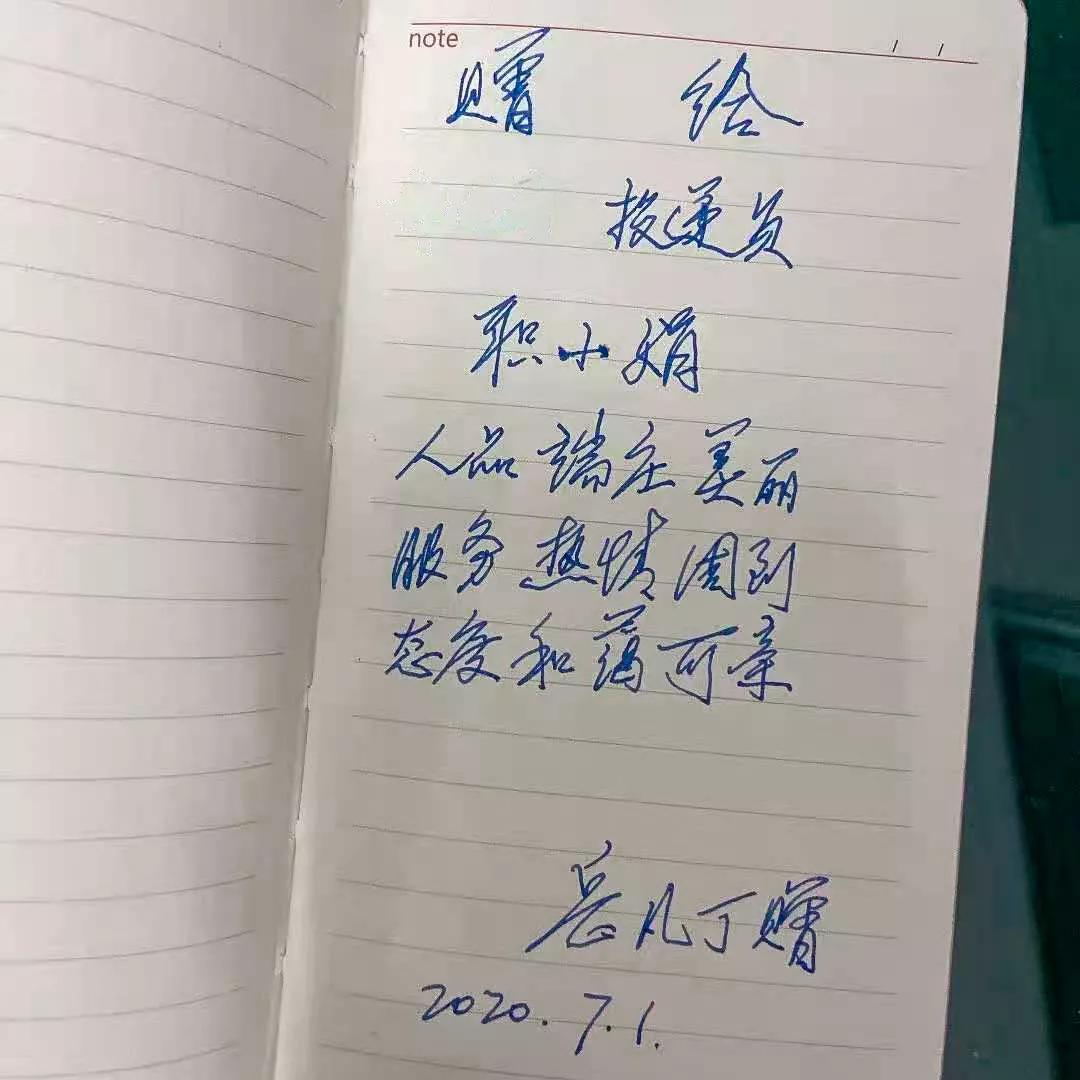 note / /
赠 给
投递员
职小娟
人品端庄美丽
服务热情周到
态度和蔼可亲
凡丁赠
2020.7.1.